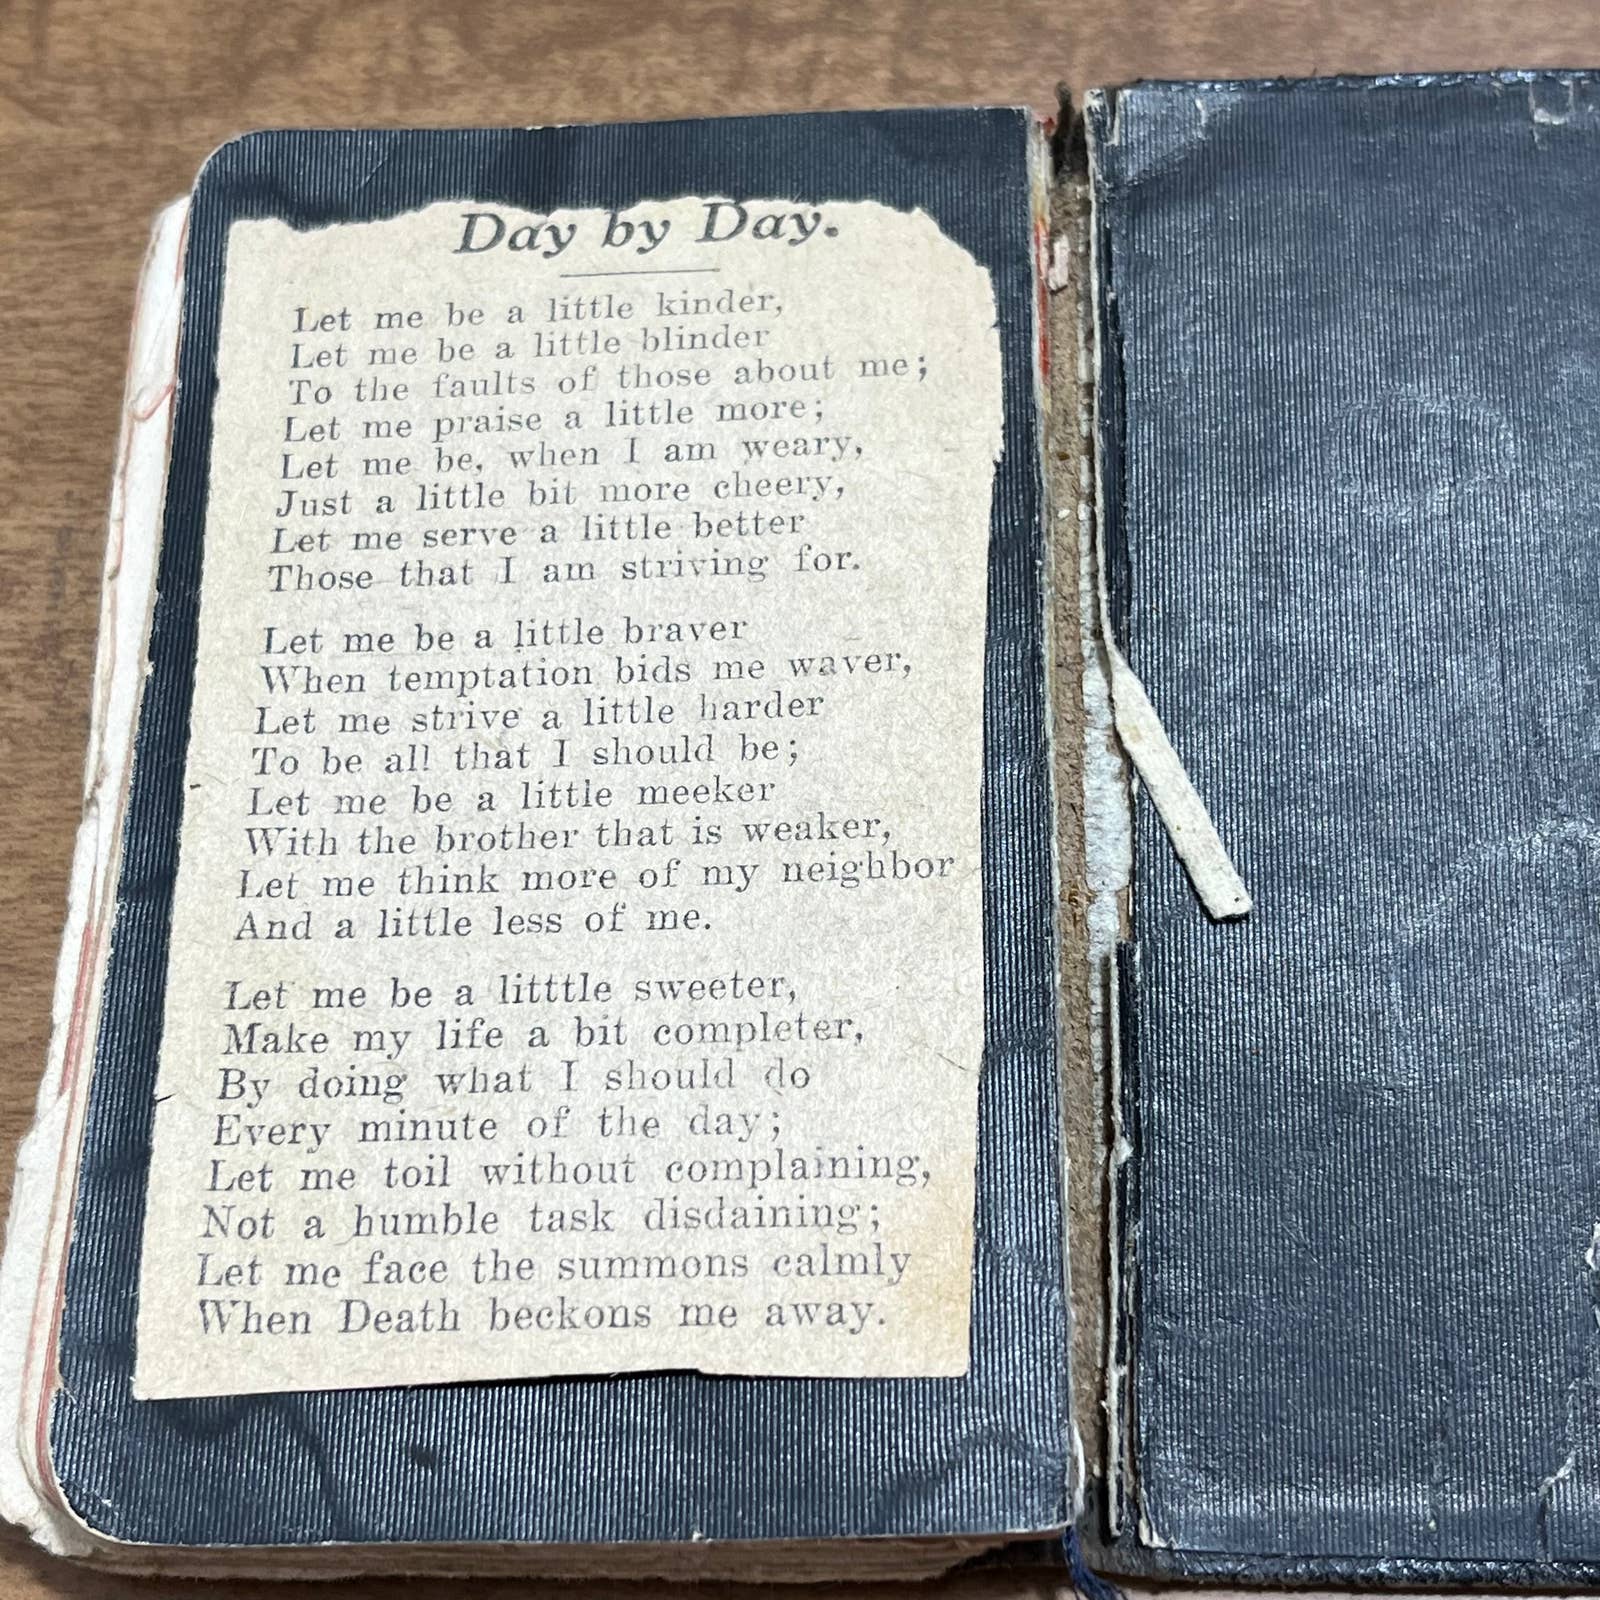 Day by Day.
Let me be a little kinder,
Let me be a little blinder
To the faults of those about me;
Let me praise a little more;
Let me be, when I am weary,
Just a little bit more cheery,
Let me serve a little better
Those that I am striving for.
Let me be a little braver
When temptation bids me waver,
Let me strive a little harder
To be all that I should be;
Let me be a little meeker
With the brother that is weaker,
Let me think more of my neighbor
And a little less of me.
Let me be a litttle sweeter,
Make my life a bit completer,
By doing what I should do
Every minute of the day;
Let me toil without complaining,
Not a humble task disdaining;
Let me face the summons calmly
When Death beckons me away.